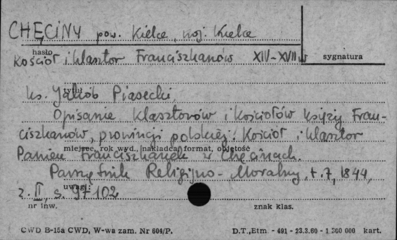 CHĘCINY pow. Kielce, woj. Kielce
hasło
Kościół i klasztor Franciszkanów XIV-XVII w
sygnatura
ks. Jakób Piasecki
Opisanie klasztorów i kościołów księży Fran-
ciszkanów, prowincji polskiej: Kościół i klasztor
miejsce, rok wyd., nakładca, format, objętość
Panien Franciszkanek w Chęcinach.
Pamiętnik Religijno-Moralny, t. 7, 1844,
uwagi:
z. II, s. 97-102
nr inw.
znak klas.
CWD B-15a CWD, W-wa zam. Nr 604/P.
D.T., Etm. - 491 - 23.3.60 - 1,760 000 kart.